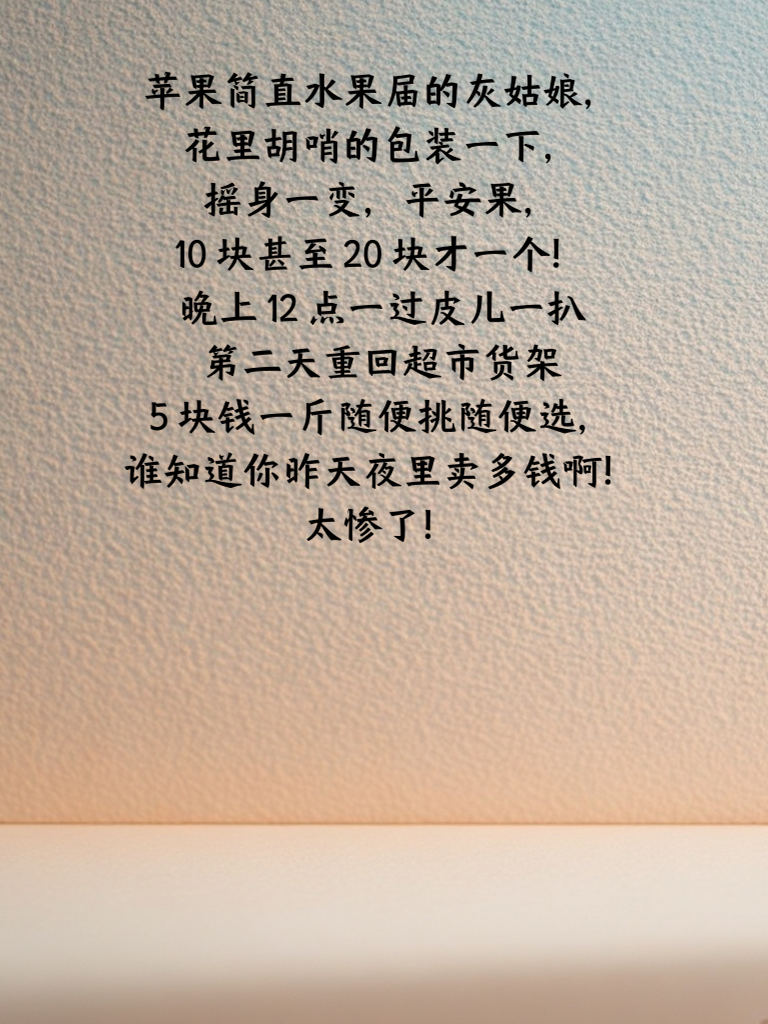 苹果简直水果届的灰姑娘,
花里胡哨的包装一下,
摇身一变, 平安果,
10块甚至20块才一个!
晚上12点一过皮儿一扒
第二天重回超市货架
5块钱一斤随便挑随便选,
谁知道你昨天夜里卖多钱啊!
太惨了!